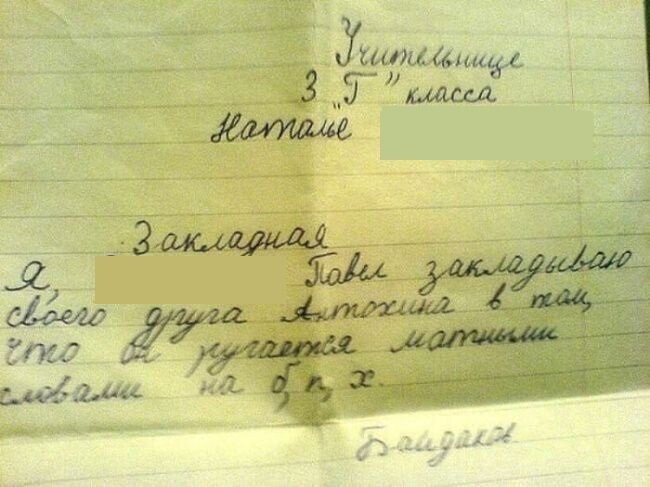 Учительнице
3 "Г" класса
Наталье
Закладная
Я, Павел закладываю
своего друга Антохина в том,
что он ругается матными
словами на б, п, х.
Байдаков